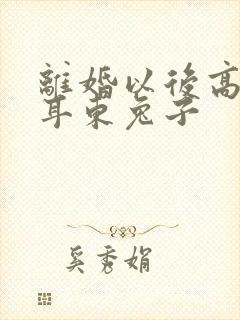 離婚以後高
耳東兔子
奚秀娟